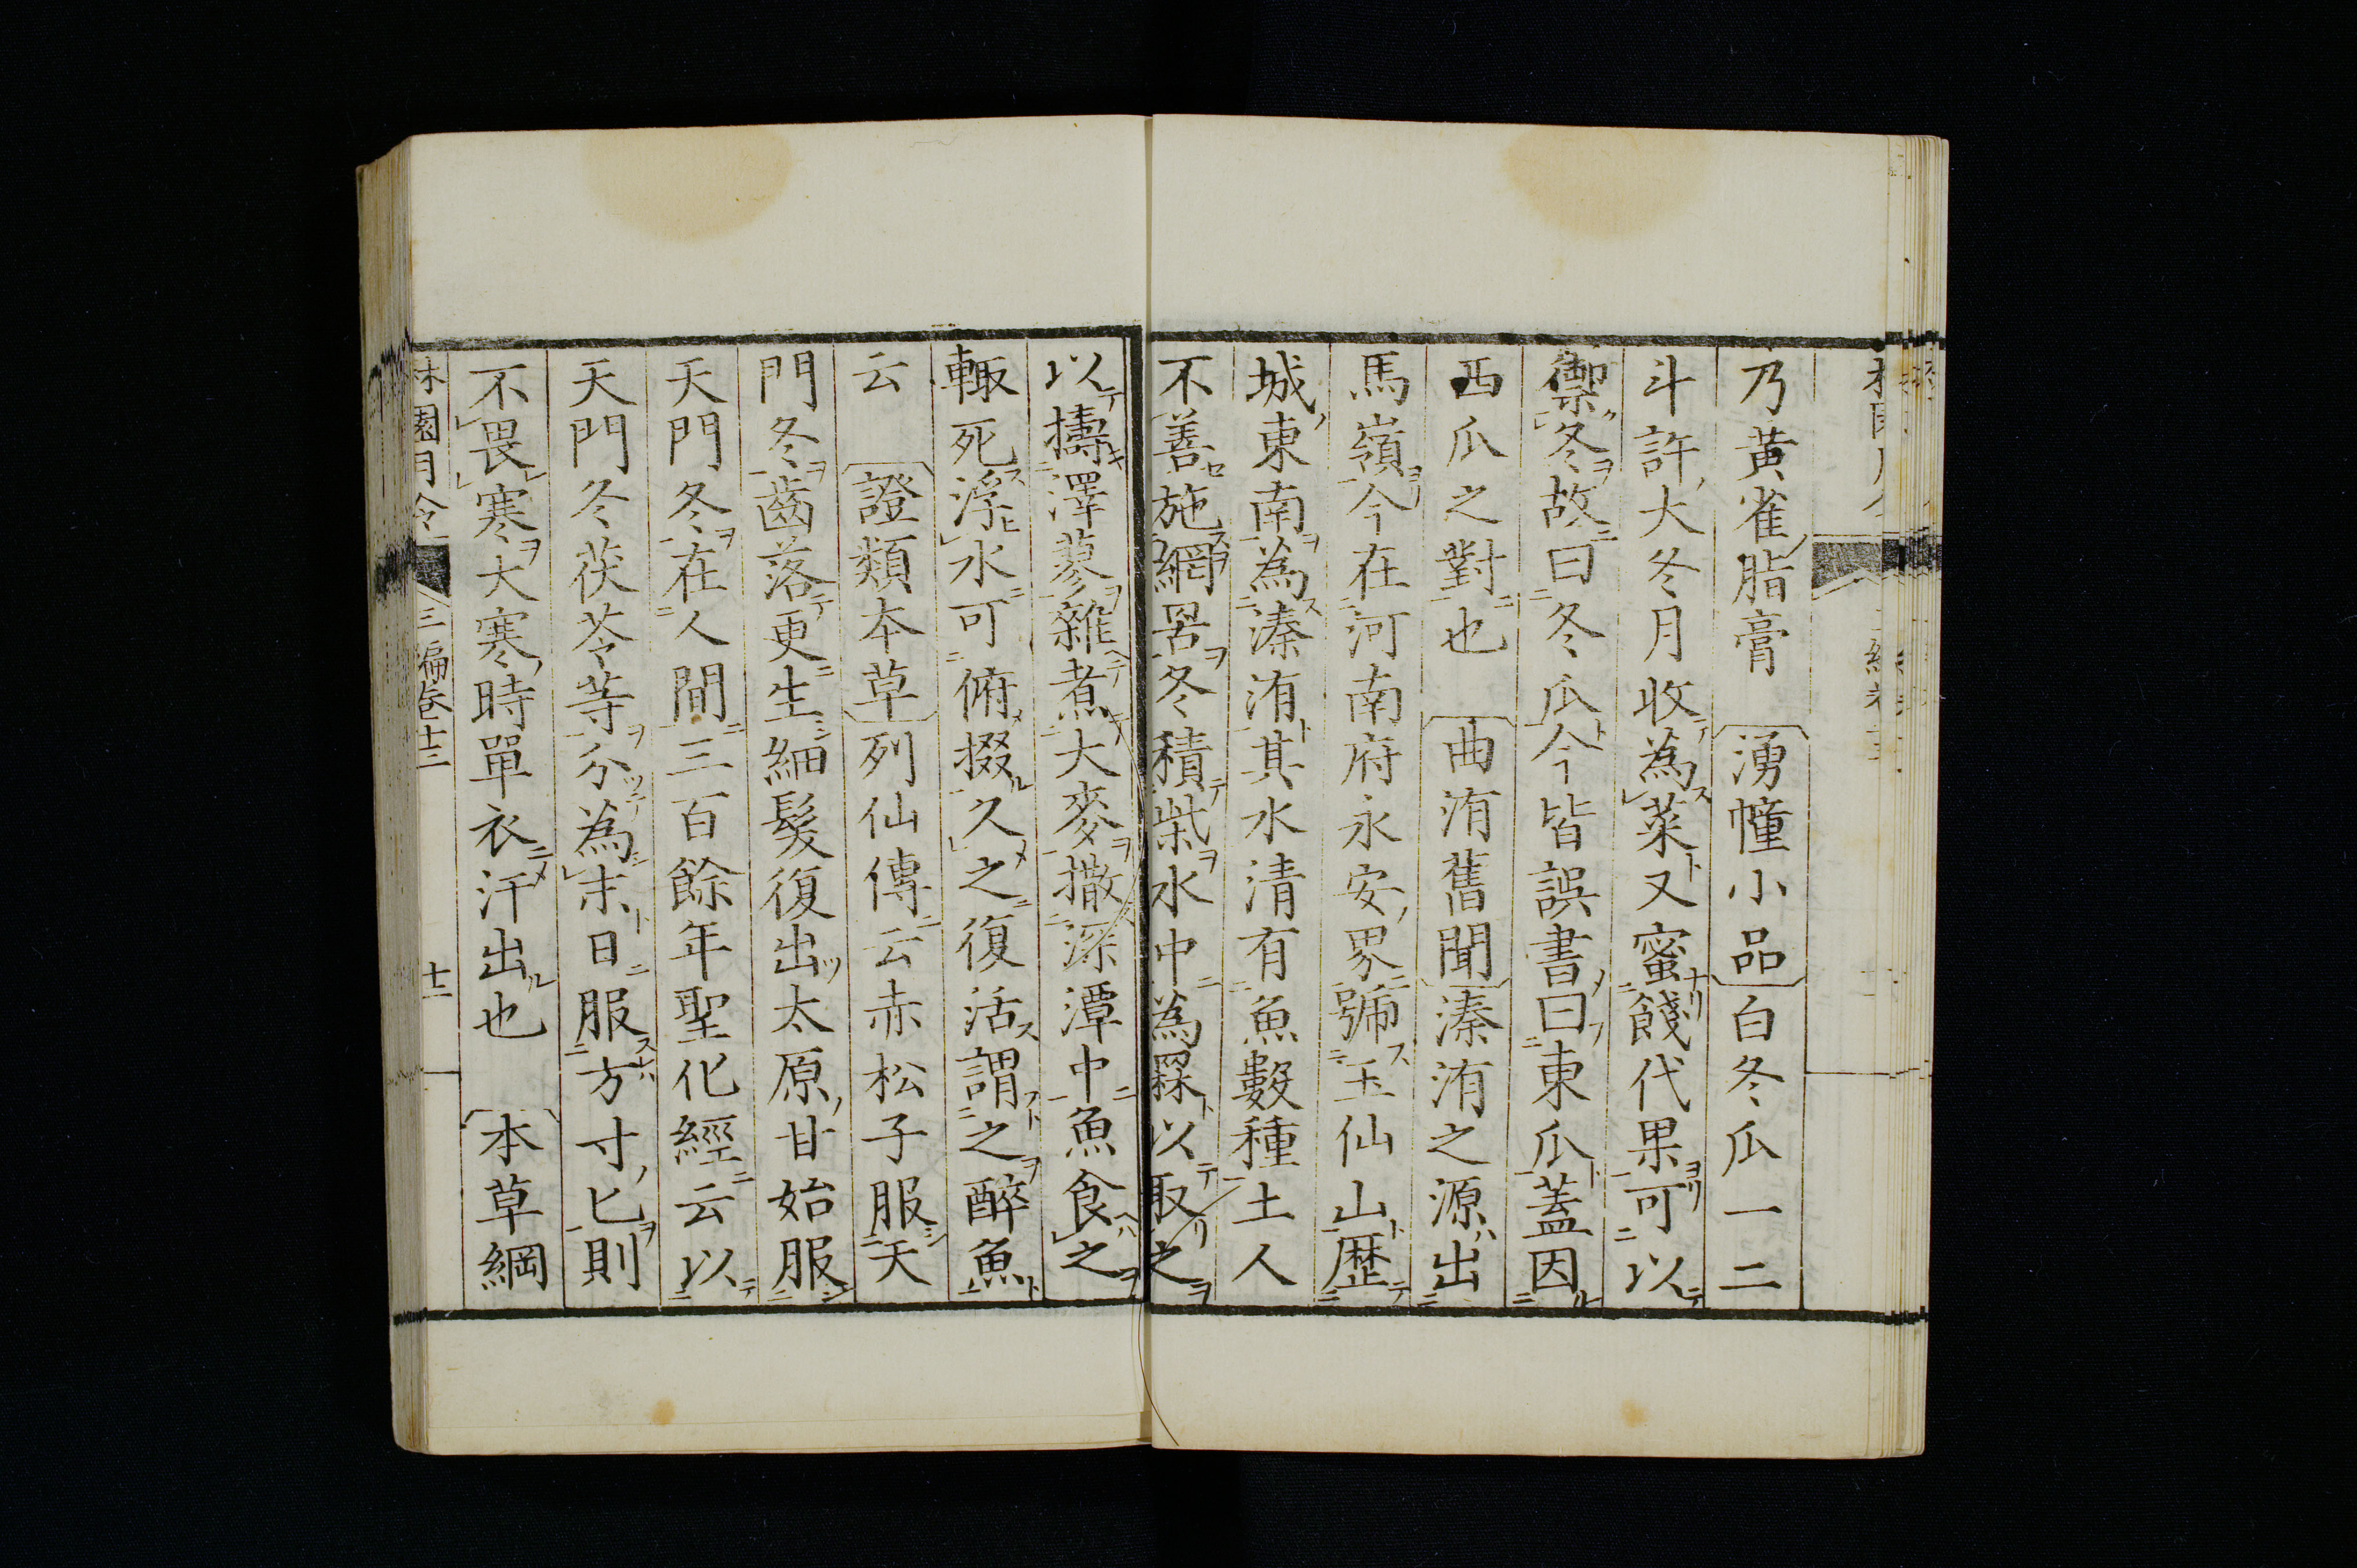 乃黃雀脂膏　〔湧幢小品〕白冬瓜一二
斗許大冬月收為菜又蜜餞代果可以
禦冬故曰冬瓜今皆誤書曰東瓜蓋因
西瓜之對也　〔曲洧舊聞〕溱洧之源出
馬嶺今在河南府永安界號玉仙山歷
城東南為溱洧其水清有魚數種土人
不善施網罟冬積柴水中為槑以取之
以擣澤蓼雜煮大麥撒深潭中魚食之
輙死浮水可俯掇久之復活謂之醉魚
云　〔證類本草〕列仙傳云赤松子服天
門冬齒落更生細髮復出太原甘始服
天門冬在人間三百餘年聖化經云以
天門冬茯苓等分為末日服方寸匕則
不畏寒大寒時單衣汗出也　〔本草綱
林園月令　三編卷十三　十二